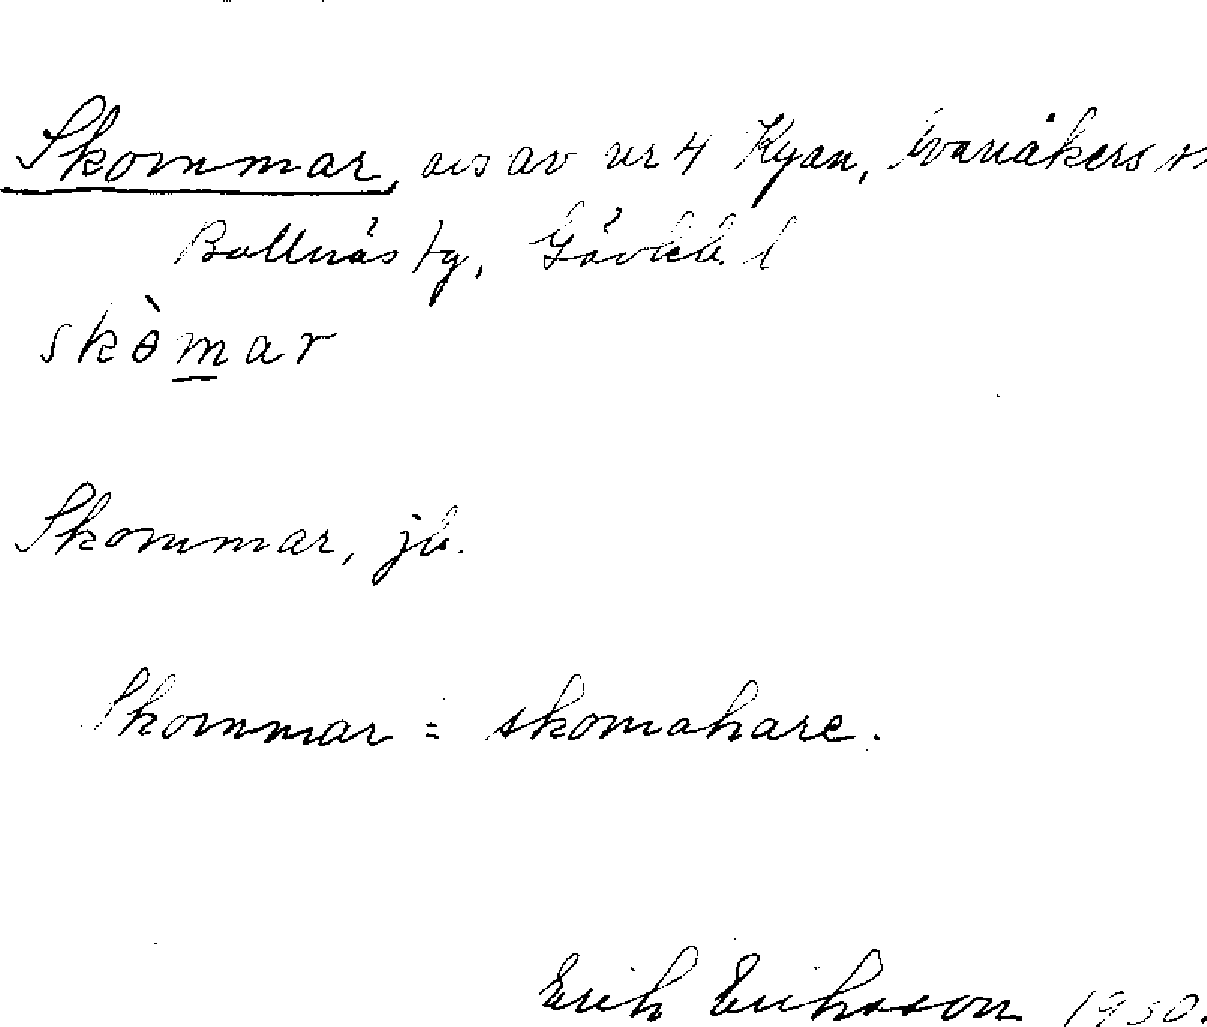 Skommar, avs av nr 4 Kyan, Svanåkers
Bollnäs tg, Gävleb. l
skòmar
Skommar, jb.
Skommar = skomakare.
Erik Eriksson 1930.